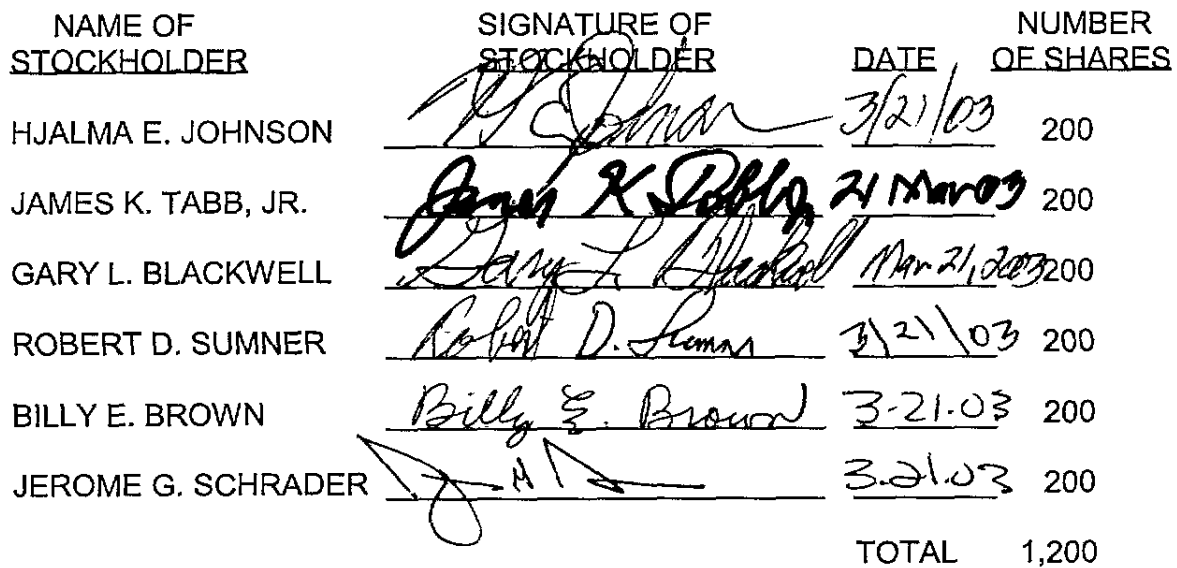 NAME OF SIGNATURE OF NUMBER
STOCKHOLDER STOCKHOLDER DATE OF SHARES
HJALMA E. JOHNSON 3/21/03 200
JAMES K. TABB, JR. James K. 21 Mar 03 200
GARY L. BLACKWELL Gary L. Blackwell Mar 21, 2003 200
ROBERT D. SUMNER Robert D. Sumner 3/21/03 200
BILLY E. BROWN Billy E. Brown 3-21-03 200
JEROME G. SCHRADER 3.21.03 200
TOTAL 1,200